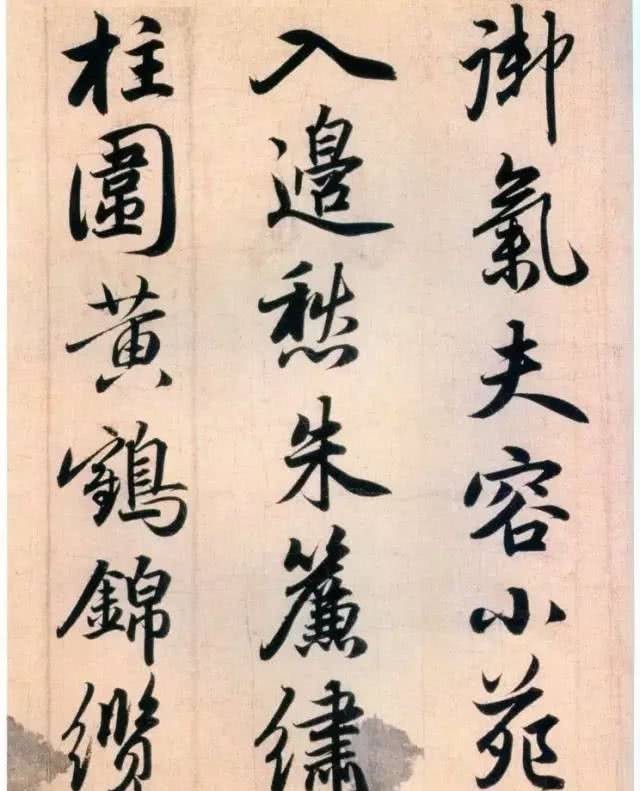 御氣夫容小苑
入邊愁朱簾繡
柱圍黃鶴錦纜